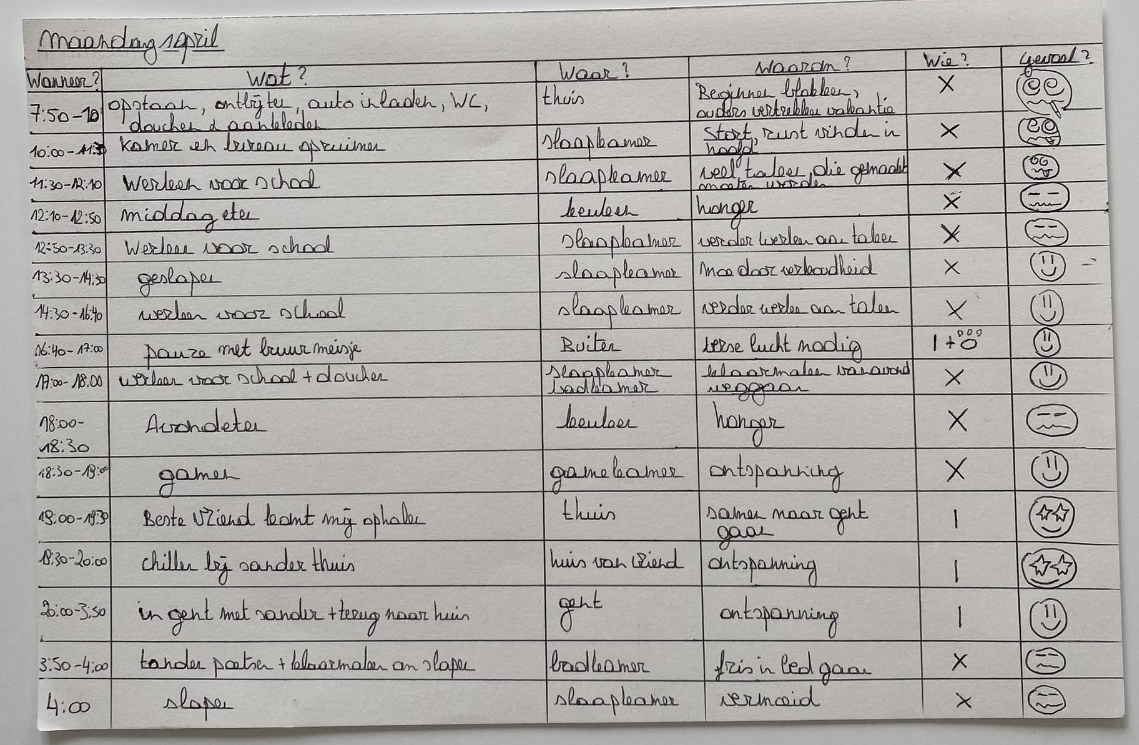 maandag 1 april
Wanneer? Wat? Waar? Waarom? Wie? Gevoel?
7:50-10 opstaan, ontbijten, auto inladen, WC, douchen & aankleden thuis Beginnen blokken, ouders vertrekken vakantie X
10:00-11:30 kamer en bureau opruimen slaapkamer Start, rust vinden in hoofd X
11:30-12:10 Werken voor school slaapkamer veel taken die gemaakt moeten worden X
12:10-12:50 middag eten keuken honger X
12:50-13:30 Werken voor school slaapkamer verder werken aan taken X
13:30-14:30 geslapen slaapkamer moe door verkoudheid X
14:30-16:40 werken voor school slaapkamer verder werken aan taken X
16:40-17:00 pauze met buurmeisje Buiten verse lucht nodig 1+
17:00-18:00 werken voor school + douchen slaapkamer badkamer klaarmaken vanavond weggaan X
18:00-18:30 Avondeten keuken honger X
18:30-19:00 gamen gamekamer ontspanning X
19:00-19:30 Beste vriend komt mij ophalen thuis samen naar gent gaan 1
19:30-20:00 chillen bij sander thuis huis van vriend ontspanning 1
20:00-3:50 in gent met sander + terug naar huis gent ontspanning 1
3:50-4:00 tanden poetsen + klaarmaken om slapen badkamer fris in bed gaan X
4:00 slapen slaapkamer vermoeid X